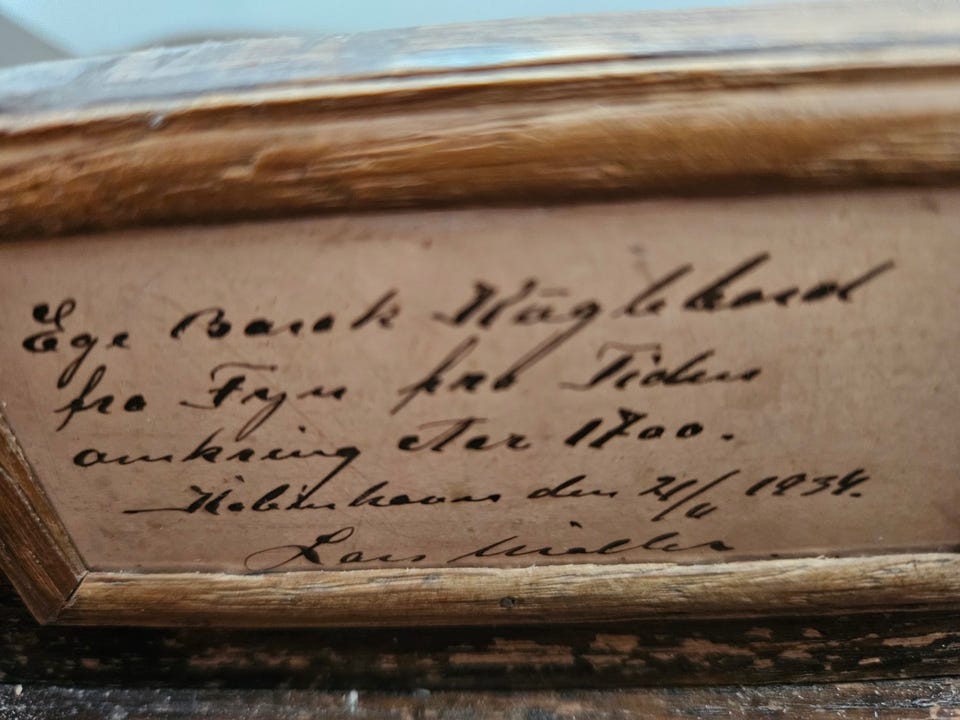 Ege Barok Kaglebord
fra Fyn fra Tiden
omkring Aar 1700.
København den 21/11 1934.
Lars Møller